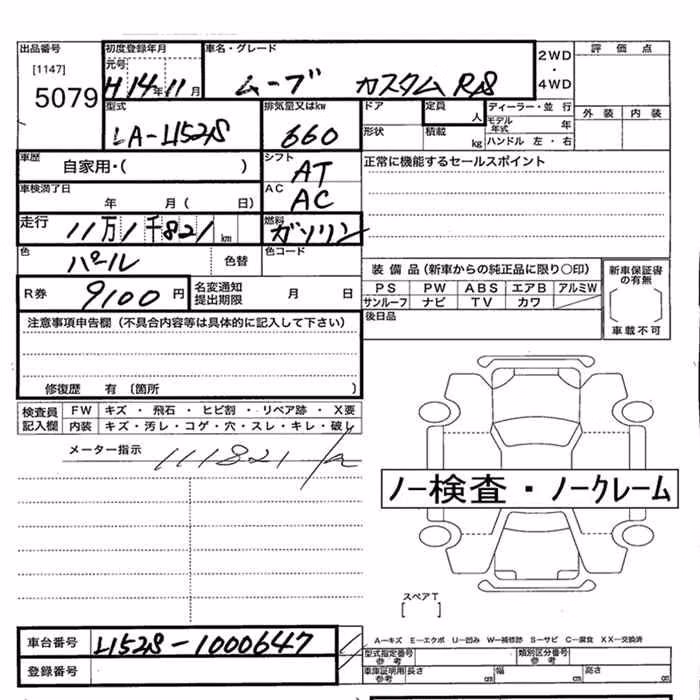 出品番号 初度登録年月 車名・グレード 2WD・4WD 評価点
[1147] 元号
5079 H14年11月 ムーブ カスタム RS
型式 排気量又はkw ドア 定員 人 ディーラー・並行 外装 内装
LA-L152S 660 形状 積載 kg モデル年式 年
ハンドル 左・右
車歴 自家用・( ) シフト AT 正常に機能するセールスポイント
車検満了日 年 月( 日) AC AC
走行 11万1千821km 燃料 ガソリン
色 パール 色替 色コード
装備品(新車からの純正品に限り○印) 新車保証書の有無
R券 9100円 名変通知提出期限 月 日 PS PW ABS エアB アルミW
サンルーフ ナビ TV カワ
注意事項申告欄(不具合内容等は具体的に記入して下さい) 後日品 車載不可
修復歴 有 (箇所 )
検査員記入欄 FW キズ・飛石・ヒビ割・リペア跡・X要
内装 キズ・汚レ・コゲ・穴・スレ・キレ・破レ
メーター指示 111821
ノー検査・ノークレーム
スペアT
[ ]
車台番号 L152S-1000647 A―キズ E―エクボ U―凹み W―補修跡 S―サビ C―腐食 XX―交換済
型式指定番号 参考 類別区分番号 参考
登録番号 車庫証明用 参考 長さ cm 幅 cm 高さ cm